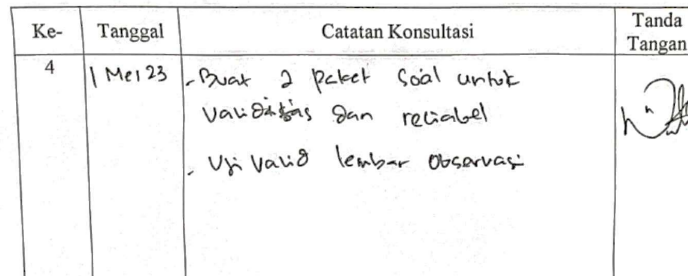 Ke- Tanggal Catatan Konsultasi Tanda Tangan
4 1 Mei 23 - Buat 2 paket soal untuk
validitas dan reliabel
- Uji valid lembar observasi